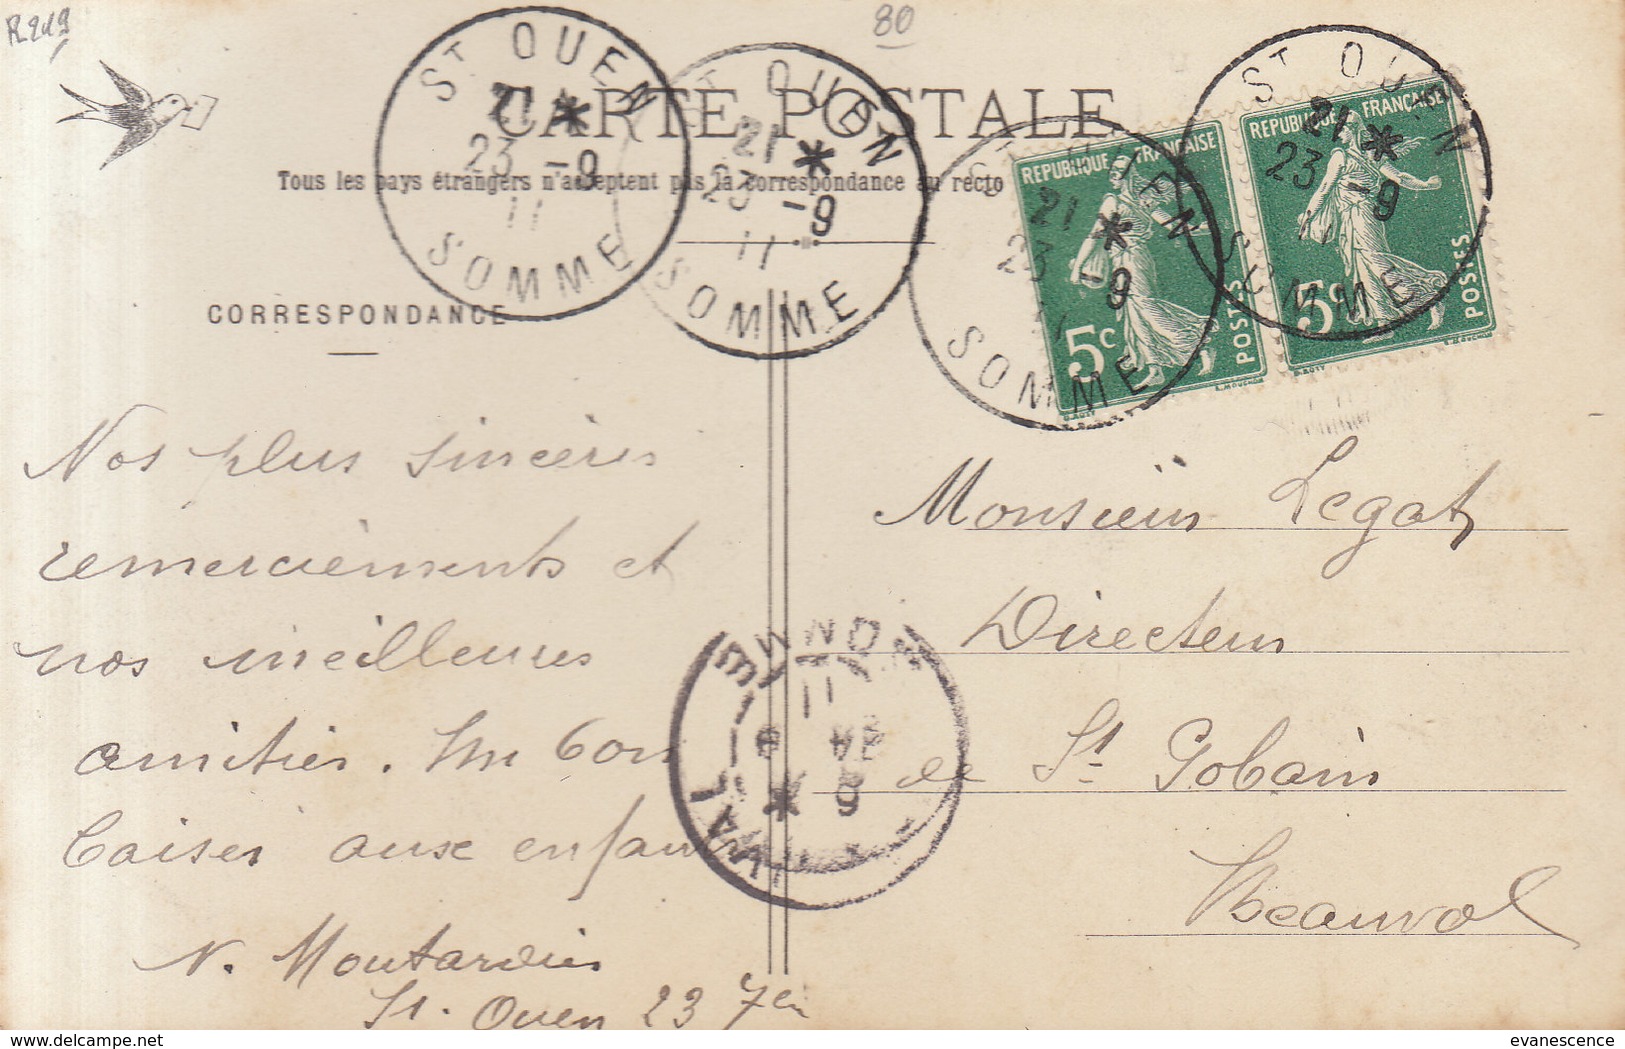 R219
80
CARTE POSTALE
Tous les pays étrangers n'acceptent pas la correspondance au recto
CORRESPONDANCE
ST OUEN
21 *
23 -9
11
SOMME
ST OUEN
21 *
23 -9
11
SOMME
ST OUEN
21 *
23 -9
11
SOMME
ST OUEN
21 *
23 -9
11
SOMME
REPUBLIQUE FRANÇAISE
5c
POSTES
REPUBLIQUE FRANÇAISE
5c
POSTES
Nos plus sincères
remerciements et
nos meilleures
amitiés. Un bon
baiser aux enfants
N. Moutardier
St. Ouen 23 7e
Monsieur Legat
Directeur
de St Gobain
Beauval
SOMME
11
evanescence